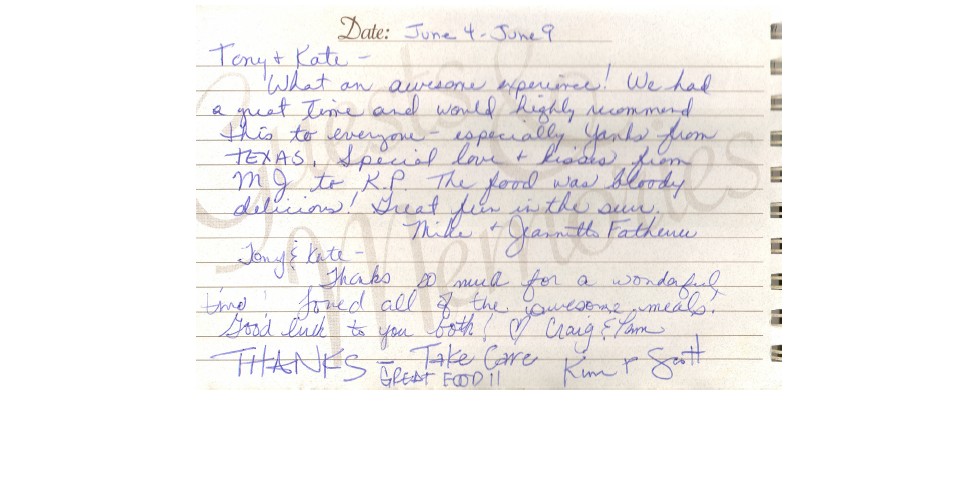 Date: June 4 - June 9
Tony + Kate -
What an awesome experience! We had
a great time and would highly recommend
this to everyone - especially Yanks from
TEXAS. Special love + kisses from
MJ to K.P. The food was bloody
delicious! Great fun in the sun.
Mike + Jeannette
Tony & Kate -
Thanks so much for a wonderful
time! Loved all of the awesome meals!
Good luck to you both! ♡ Craig & Pam
THANKS - Take Care Kim + Scott
GREAT FOOD!!
Guests &
Memories